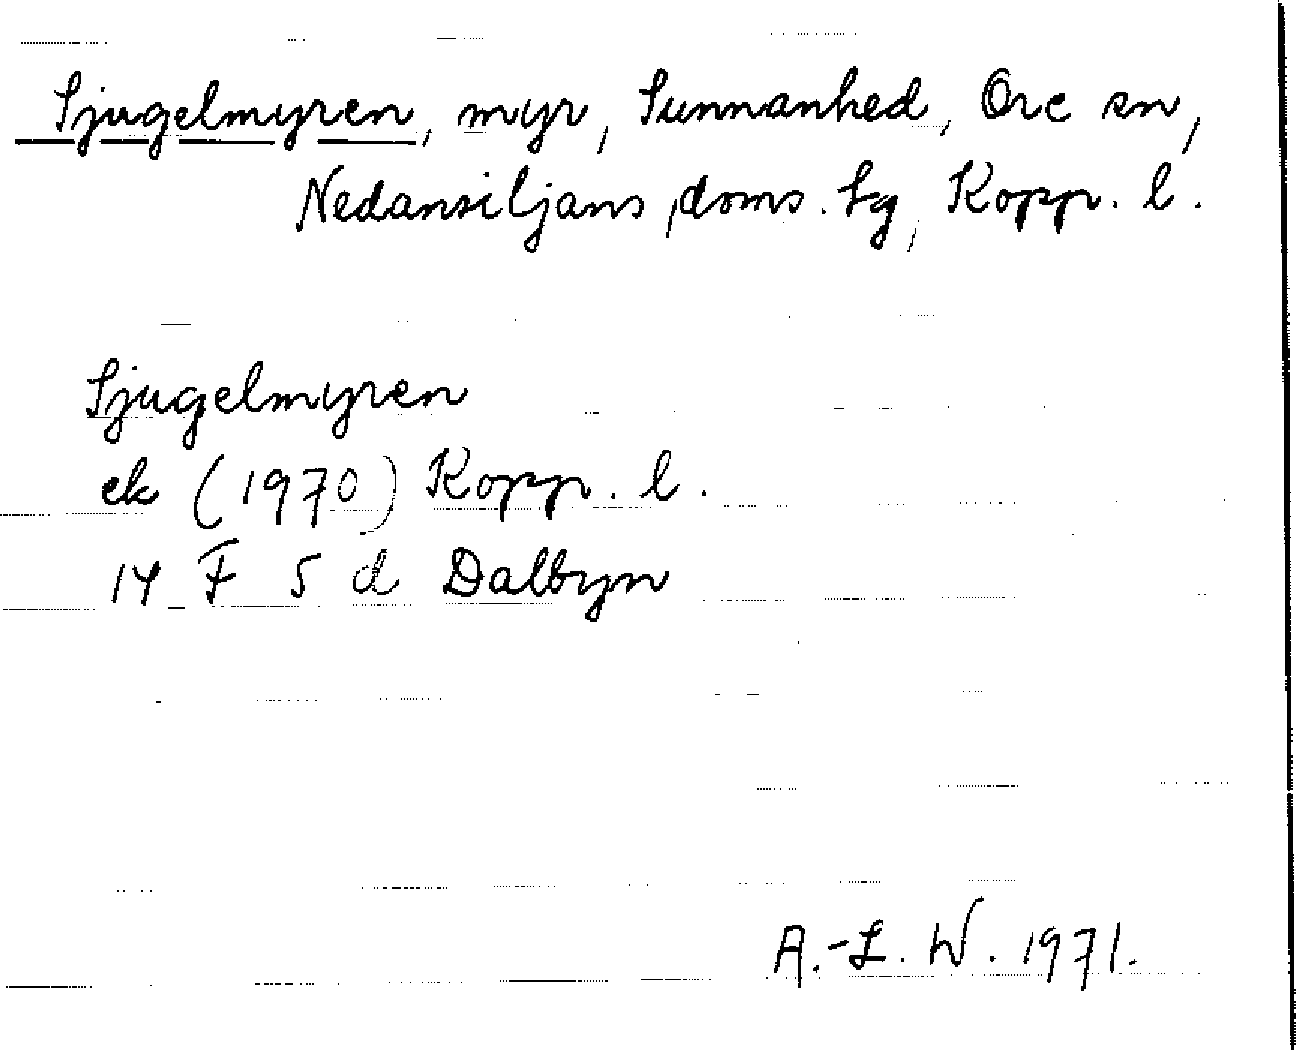 Sjugelmyren, myr, Sunnanhed, Ore sn,
Nedansiljans doms. tg, Kopp. l.
Sjugelmyren
ek (1970) Kopp. l.
14 F 5 d Dalbyn
A.-L. W. 1971.